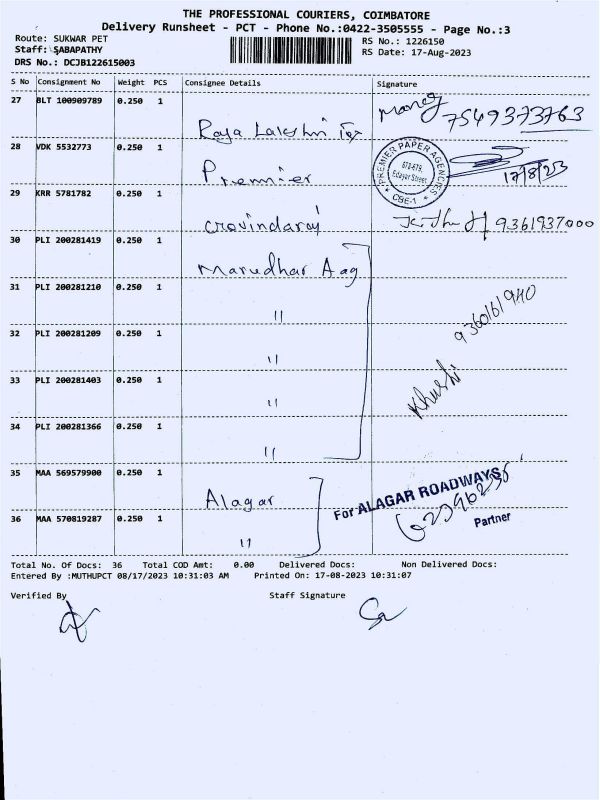 THE PROFESSIONAL COURIERS, COIMBATORE
Delivery Runsheet - PCT - Phone No.:0422-3505555 - Page No.:3
Route: SUKWAR PET
RS No.: 1226150
Staff: SABAPATHY
RS Date: 17-Aug-2023
DRS No.: DCJB122615003
S No Consignment No Weight PCS Consignee Details Signature
27 BLT 100909789 0.250 1
Raja Lakshmi Tex 7549373763
28 VDK 5532773 0.250 1
Premier
PREMIER PAPER AGENCIES
Edayar Street,
CBE-1
17/8/23
29 KRR 5781782 0.250 1
Govindaraj 9361937000
30 PLI 200281419 0.250 1
Marudhar Aag
31 PLI 200281210 0.250 1
"
32 PLI 200281209 0.250 1
"
33 PLI 200281403 0.250 1
"
34 PLI 200281366 0.250 1
"
Khushi
35 MAA 569579900 0.250 1
Alagar
For ALAGAR ROADWAYS
Partner
36 MAA 570819287 0.250 1
"
Total No. Of Docs: 36 Total COD Amt: 0.00 Delivered Docs: Non Delivered Docs:
Entered By :MUTHUPCT 08/17/2023 10:31:03 AM Printed On: 17-08-2023 10:31:07
Verified By Staff Signature